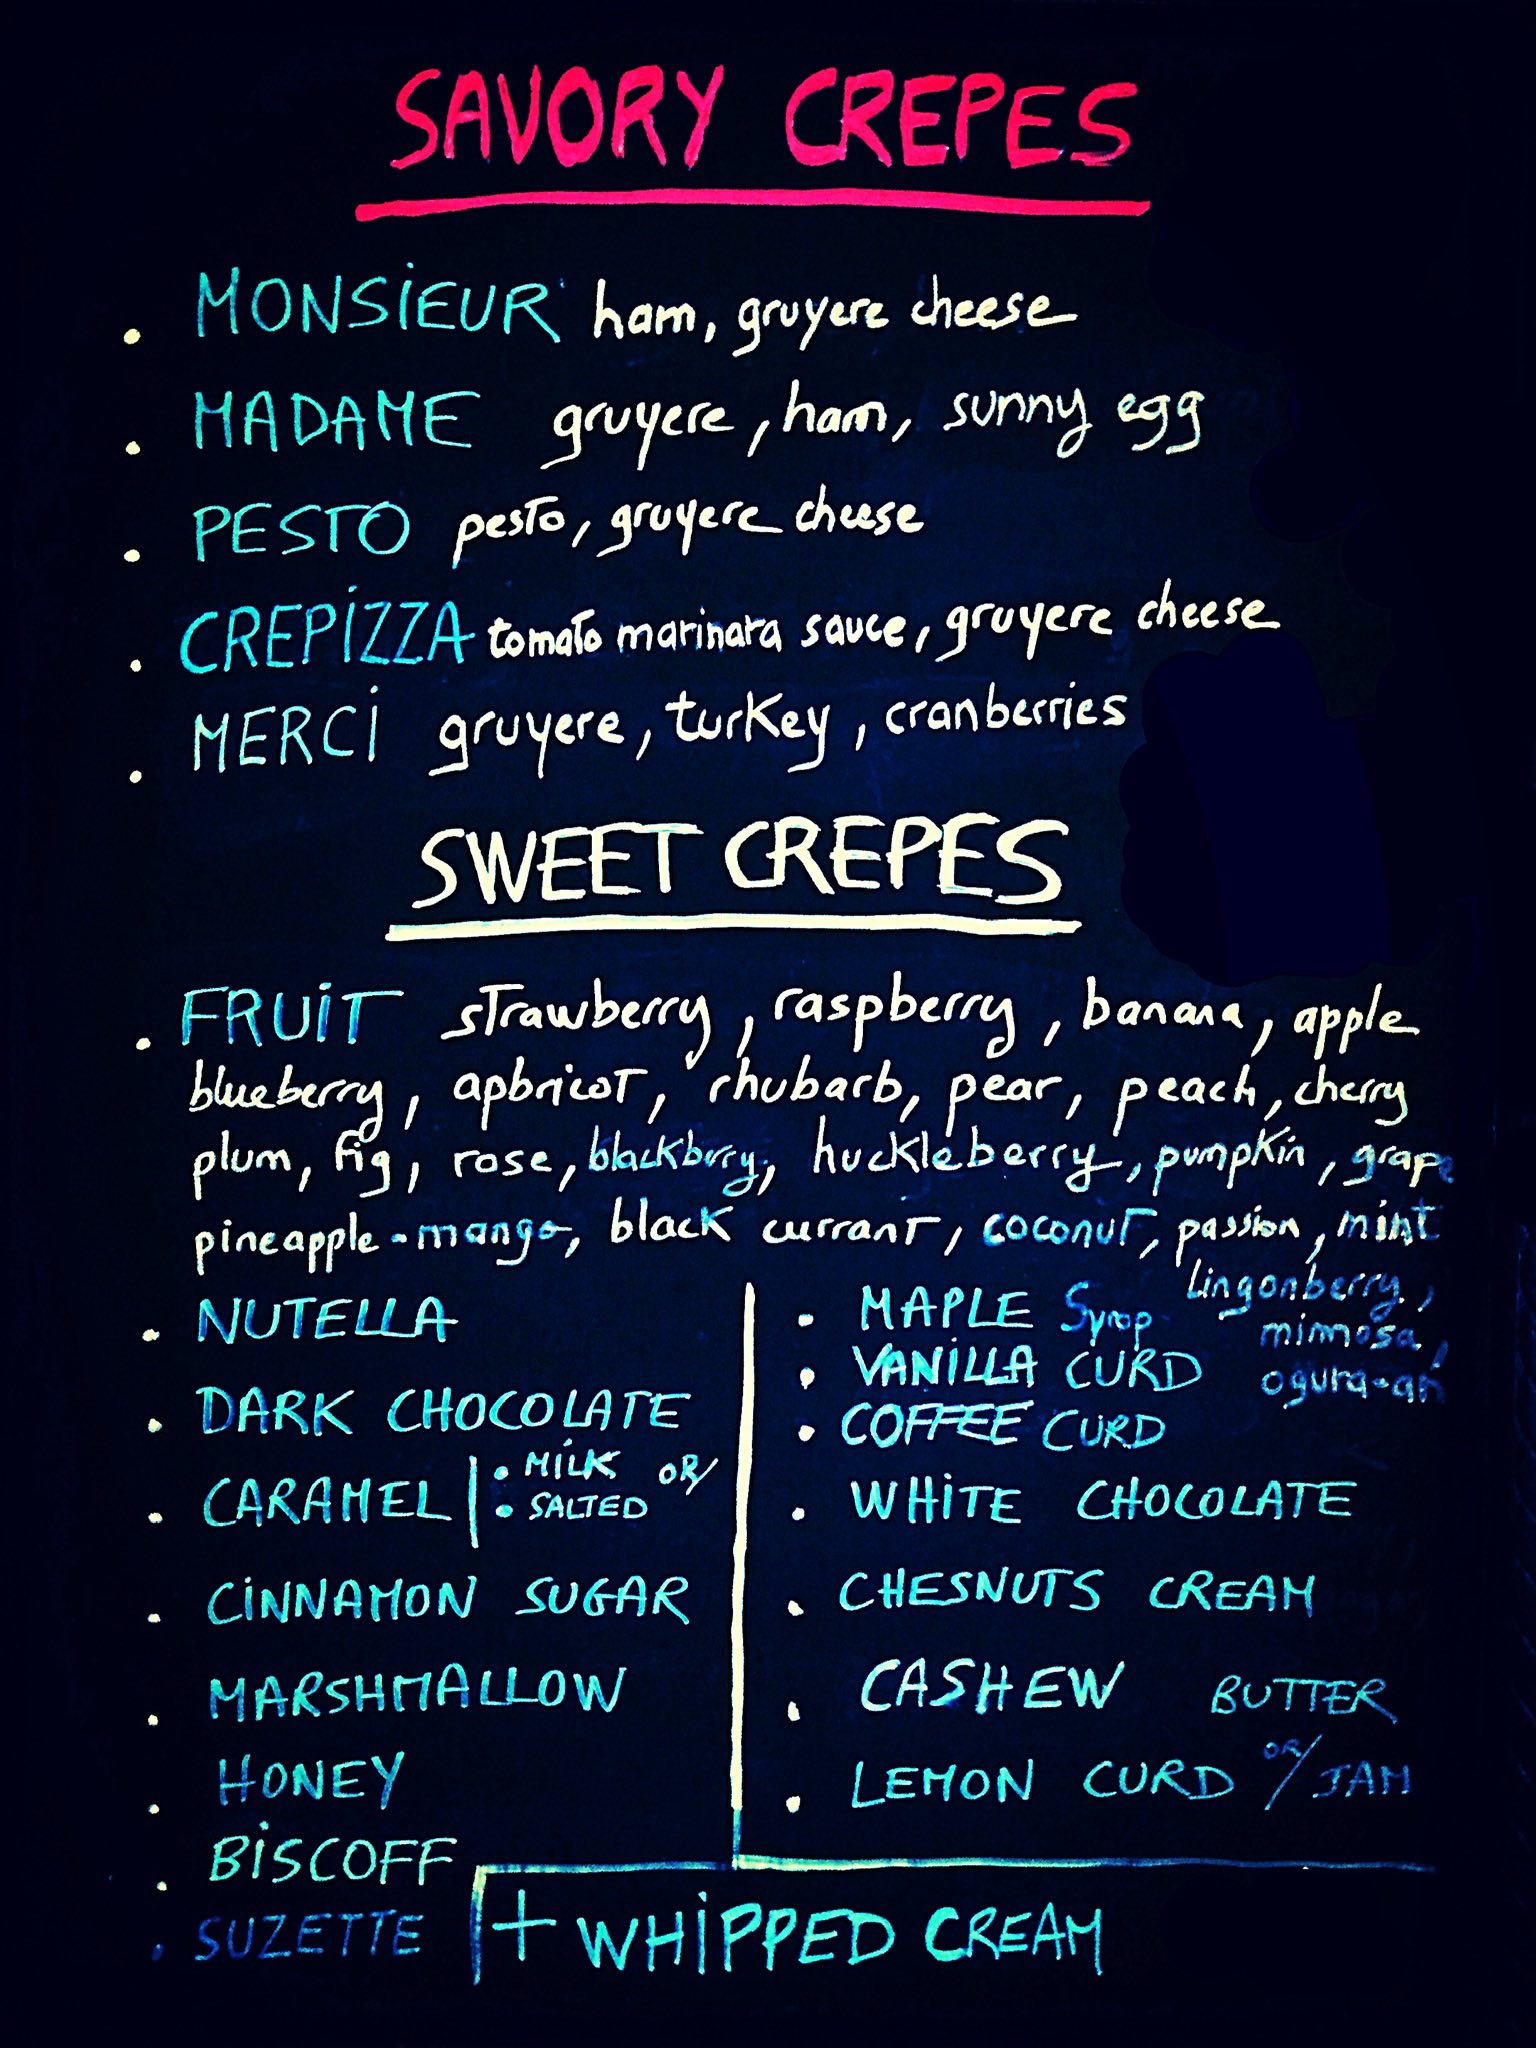 SAVORY CREPES
. MONSIEUR ham, gruyere cheese
. MADAME gruyere, ham, sunny egg
. PESTO pesto, gruyere cheese
. CREPIZZA tomato marinara sauce, gruyere cheese
. MERCI gruyere, turkey, cranberries
SWEET CREPES
. FRUIT strawberry, raspberry, banana, apple
blueberry, apbricot, rhubarb, pear, peach, cherry
plum, fig, rose, blackbrry, huckleberry, pumpkin, grape
pineapple-mango, black currant, coconut, passion, mint
lingonberry,
mimosa,
ogura-an
. NUTELLA
. DARK CHOCOLATE
. CARAMEL | . MILK OR/
. SALTED
. CINNAMON SUGAR
. MARSHMALLOW
. HONEY
. BISCOFF
. SUZETTE
. MAPLE Syrop
. VANILLA CURD
. COFFEE CURD
. WHITE CHOCOLATE
. CHESNUTS CREAM
. CASHEW BUTTER
. LEMON CURD OR/ JAM
+ WHIPPED CREAM